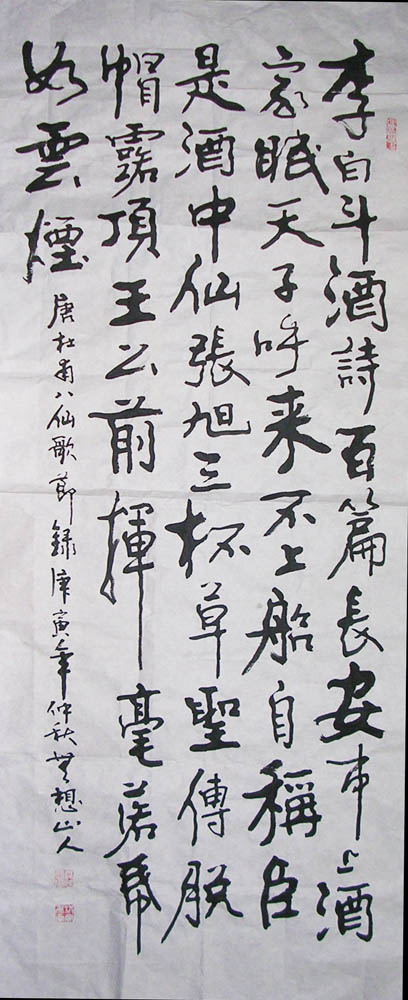 李白斗酒詩百篇長安市上酒
家眠天子呼来不上船自稱臣
是酒中仙張旭三杯草聖傳脱
帽露頂王公前揮毫落帋
如雲煙
唐杜甫八仙歌節録庚寅年仲秋無想山人